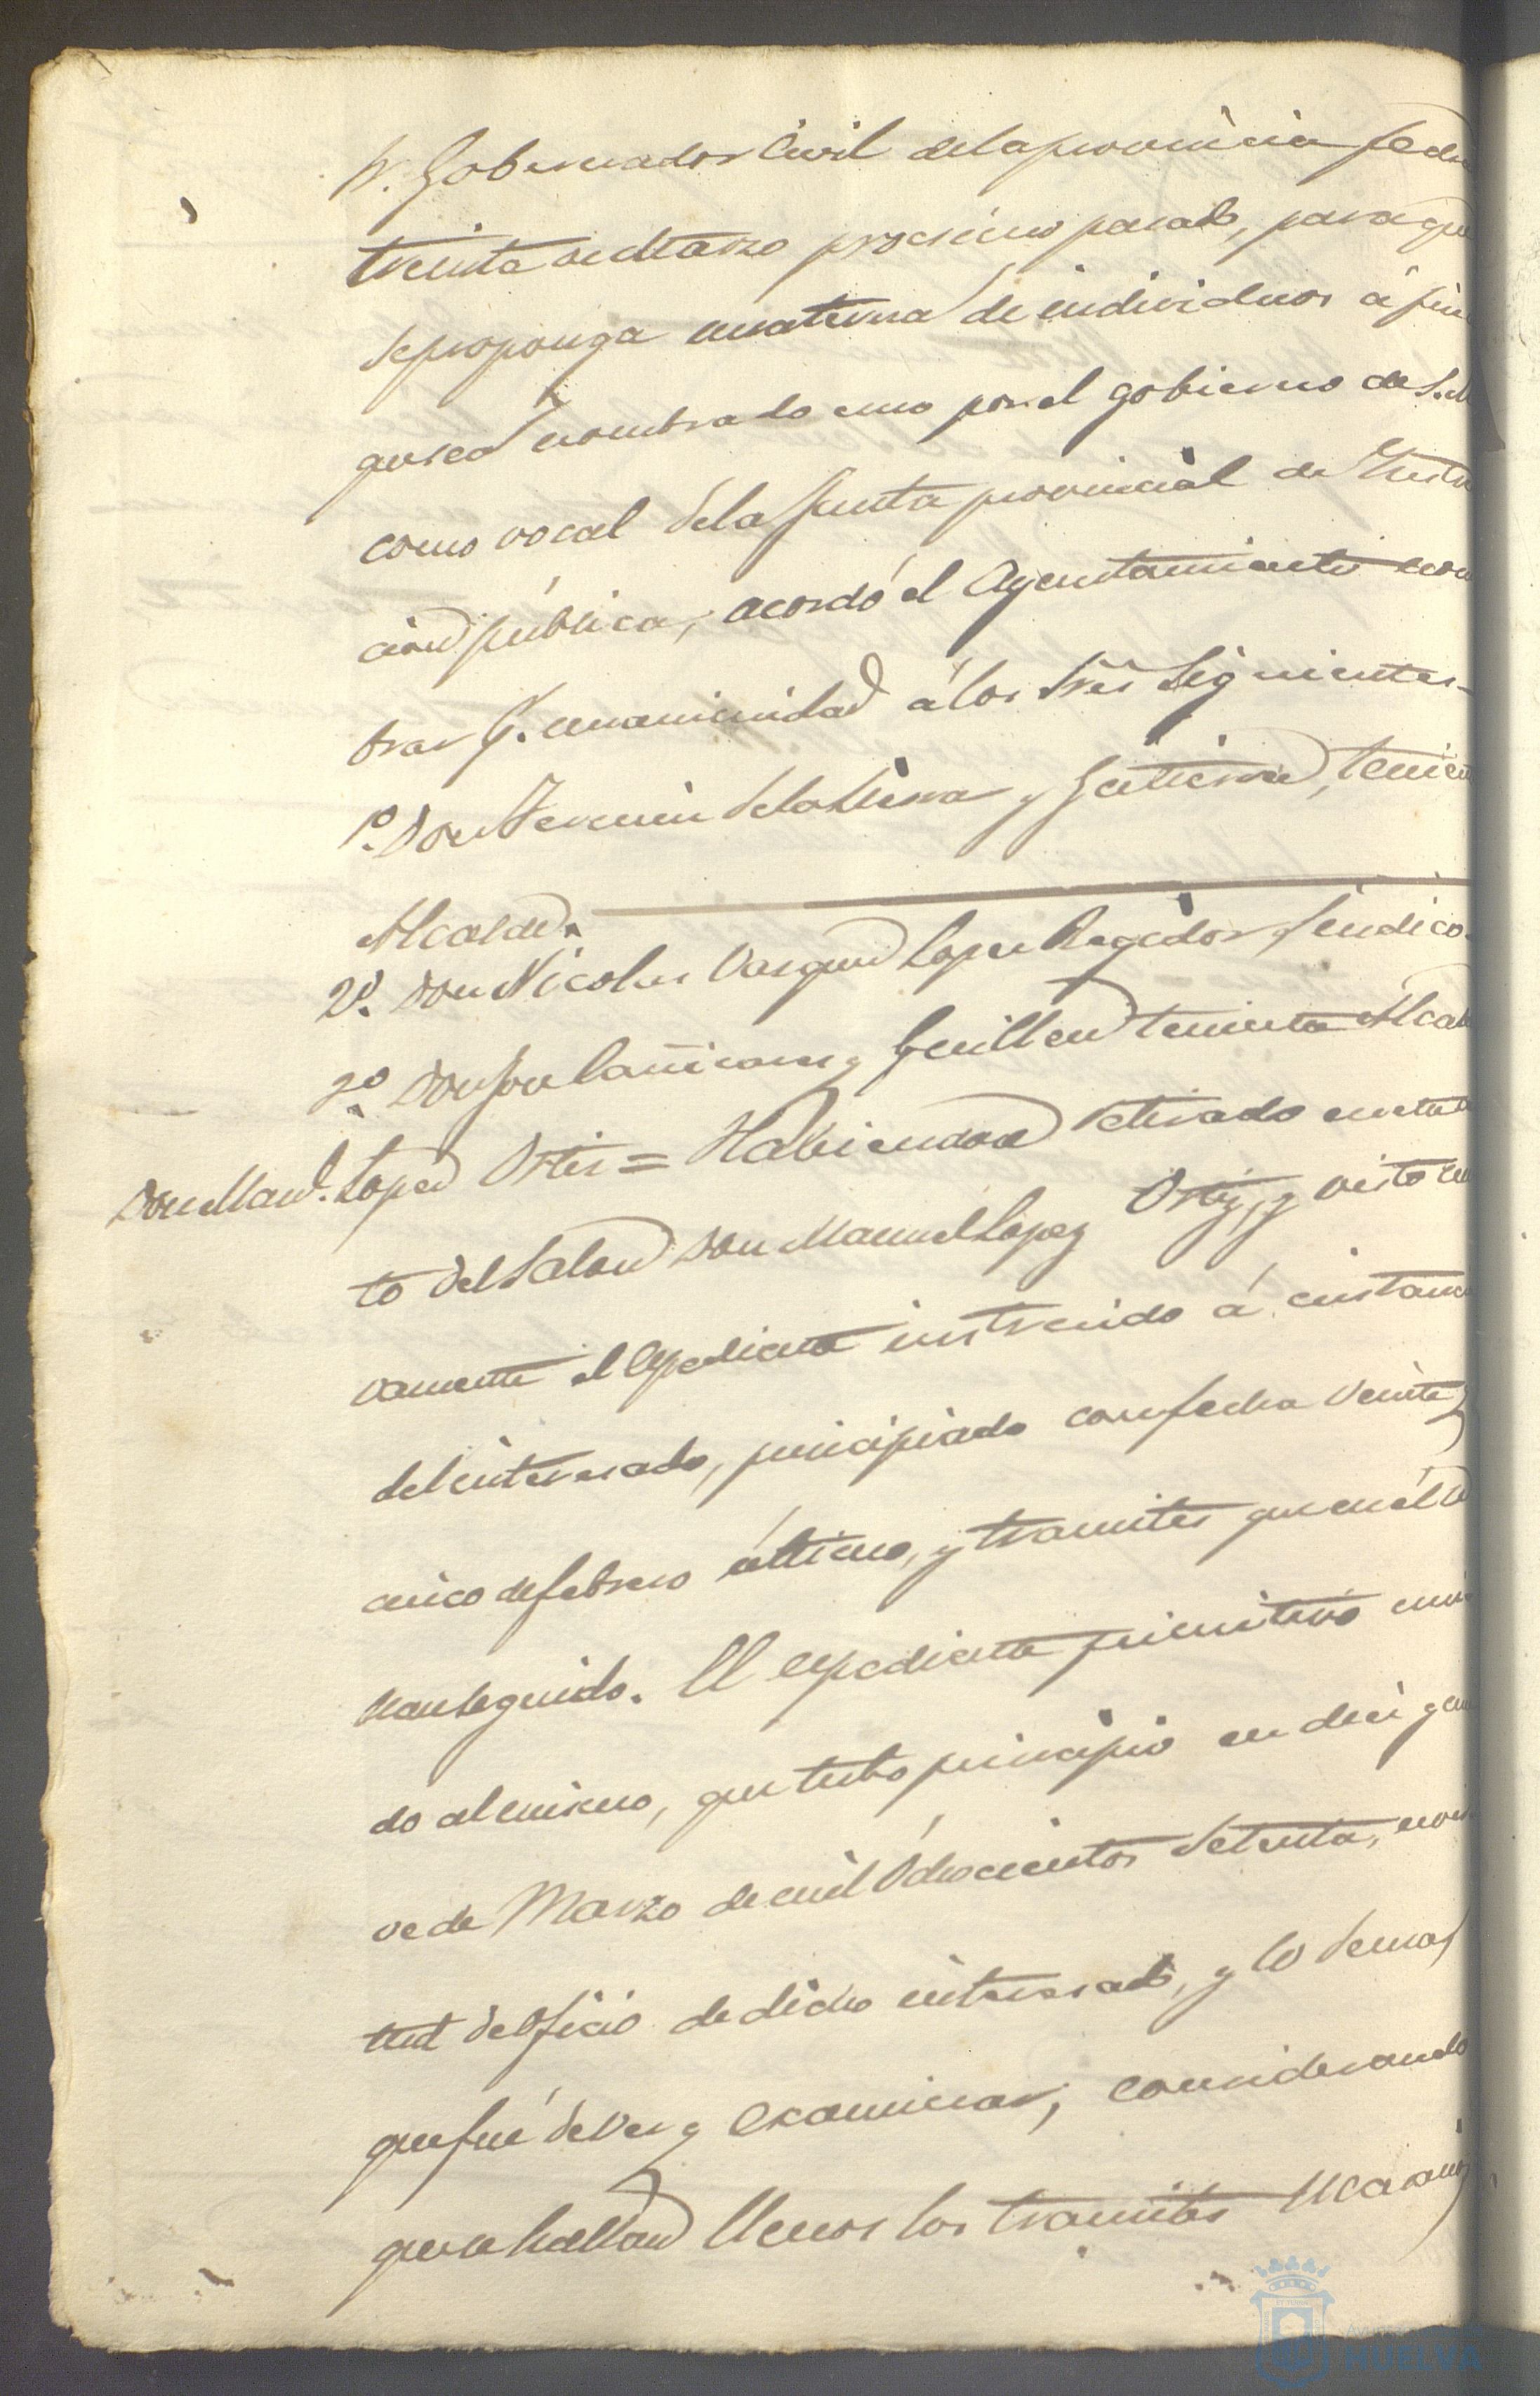 Sr. Gobernador Civil de la provincia fecha
treinta de Marzo procsimo pasado, para que
se proponga una terna de individuos á fin
que sea nombrado uno por el gobierno de S. M.
como vocal de la Junta provincial de Instru
cion pública, acordó el Ayuntamiento nom
brar p.r unanimidad á los Sres siguientes -
1º. Don Fermin de la Sierra y Gutierrez, tenien
Alcalde.
2º. Don Nicolas Vasquez Lopez Regidor Sindico.
3º. Don José Cañizares y Guillen teniente Alcal
Don Man.l Lopez Ortiz = Habiendose retirado en este ac
to del Salon Don Manuel Lopez Ortiz, y visto nue
vamente el Espediente instruido á instanc
del interesado, principiado con fecha veinte y
cinco de febrero último, y tramites que en él se
han seguido. El espediente primitivo uni
do al mismo, que tubo principio en diez y nue
ve de Marzo de mil ochocientos setenta,
tud de oficio de dicho interesado, y lo demas
que fué de ver y examinar, considerando
que se hallan llenos los tramites
Ayuntamiento de
HUELVA